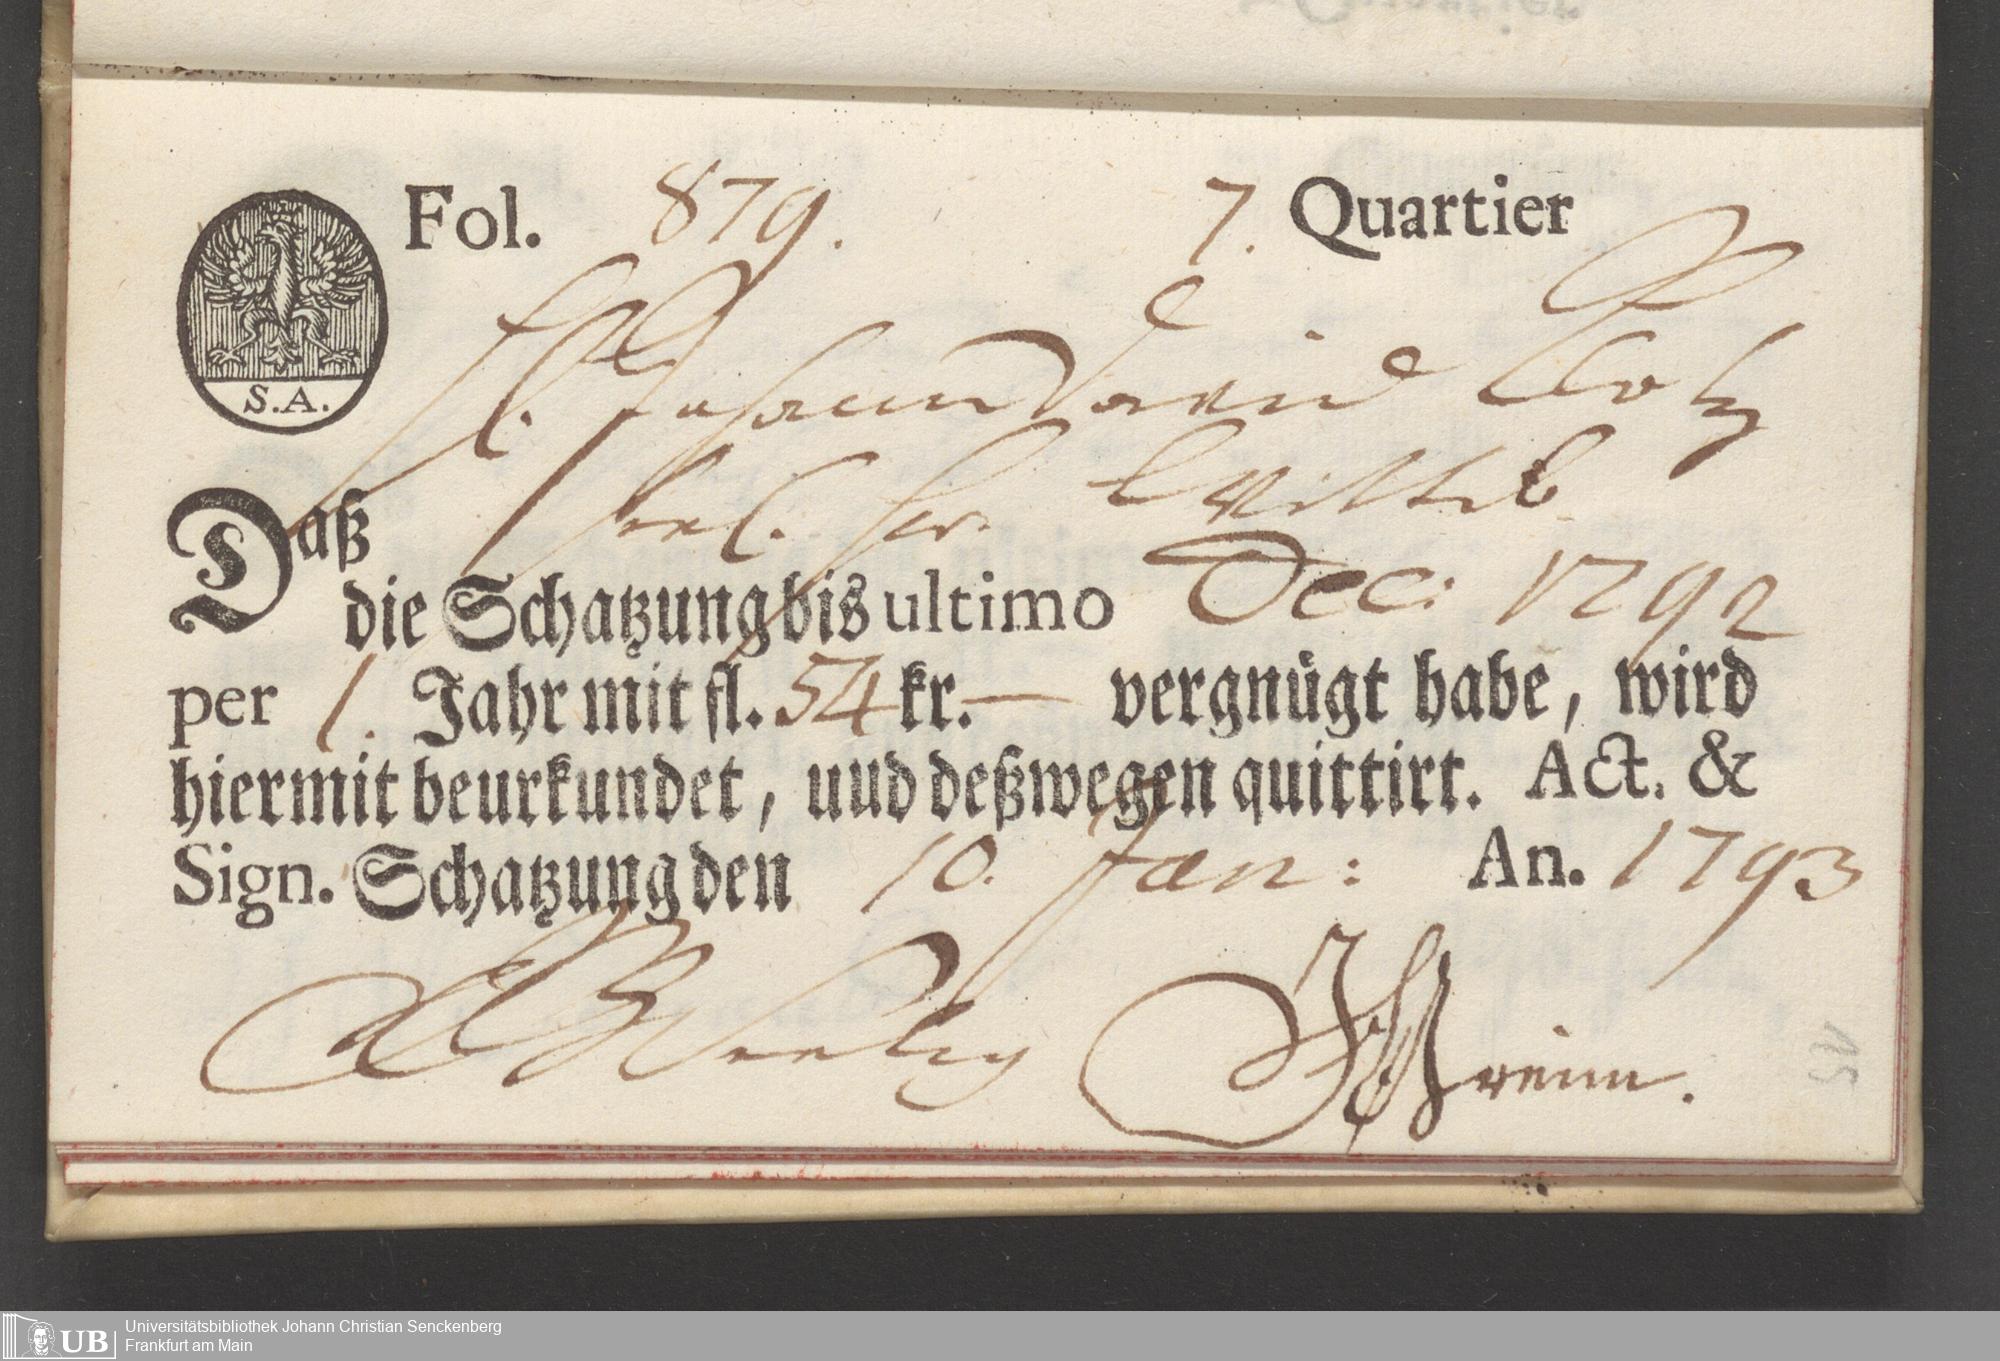 Fol. 879. 7. Quartier
S.A.
Johann David
seel. Fr. Wittib
Daß
die Schatzung bis ultimo Dec: 1792
per 1. Jahr mit fl. 54 kr. — vergnügt habe, wird
hiermit beurkundet, uud deßwegen quittirt. Act. &
Sign. Schatzung den 10. Jan: An. 1793
UB Universitätsbibliothek Johann Christian Senckenberg
Frankfurt am Main